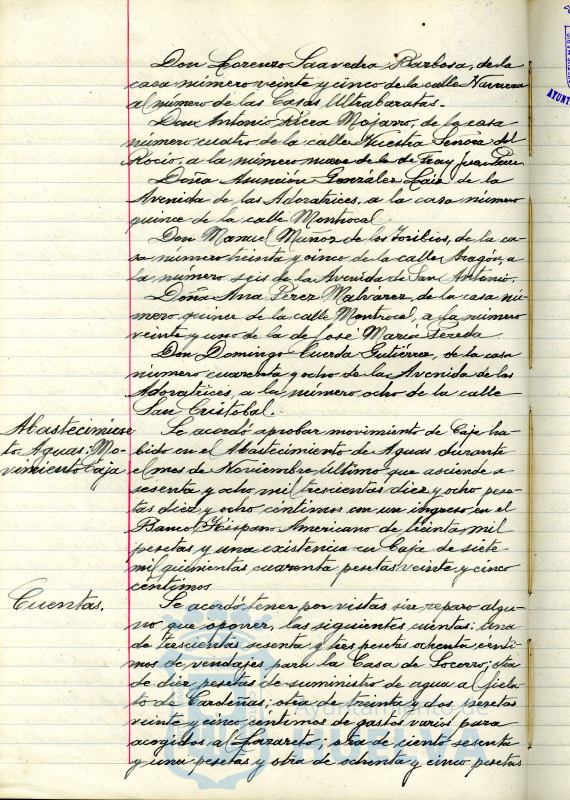 Don Lorenzo Saavedra Barbosa, de la
casa número veinte y cinco de la calle Navarra
al número de las Casas Ultrabaratas.
Don Antonio Riera Mojarro, de la casa
número cuatro de la calle Nuestra Señora del
Rocío, a la número nueve de la de
Doña Asunción González Laiz, de la
Avenida de las Adoratrices, a la casa número
quince de la calle Montrocal.
Don Manuel Muñoz de los Toribios, de la ca-
sa número treinta y cinco de la calle Aragón, a
la número seis de la Avenida de San Antonio.
Doña Ana Pérez Malvárez, de la casa nú-
mero quince de la calle Montrocal, a la número
veinte y uno de la de José María Pereda.
Don Domingo Cuerda Gutiérrez, de la casa
número cuarenta y ocho de la Avenida de las
Adoratrices, a la número ocho de la calle
San Cristóbal.
Abastecimien-
to Aguas: Mo-
vimiento Caja
Se acordó aprobar movimiento de Caja ha-
bido en el Abastecimiento de Aguas durante
el mes de Noviembre último que asciende a
sesenta y ocho mil trescientas diez y ocho pese-
tas diez y ocho céntimos con un ingreso en el
Banco Hispano Americano de treinta mil
pesetas y una existencia en Caja de siete
mil quinientas cuarenta pesetas veinte y cinco
céntimos
Cuentas.
Se acordó tener por vistas sin reparo algu-
no que oponer, las siguientes cuentas: una
de trescientas sesenta y tres pesetas ochenta cénti-
mos de vendajes para la Casa de Socorro; otra
de diez pesetas de suministro de agua al fiela-
to de Cardeñas; otra de treinta y dos pesetas
veinte y cinco céntimos de gastos varios para
acogidos al Lazareto; otra de ciento sesenta
y una pesetas y otra de ochenta y cinco pesetas
Ayuntamiento de
HUELVA